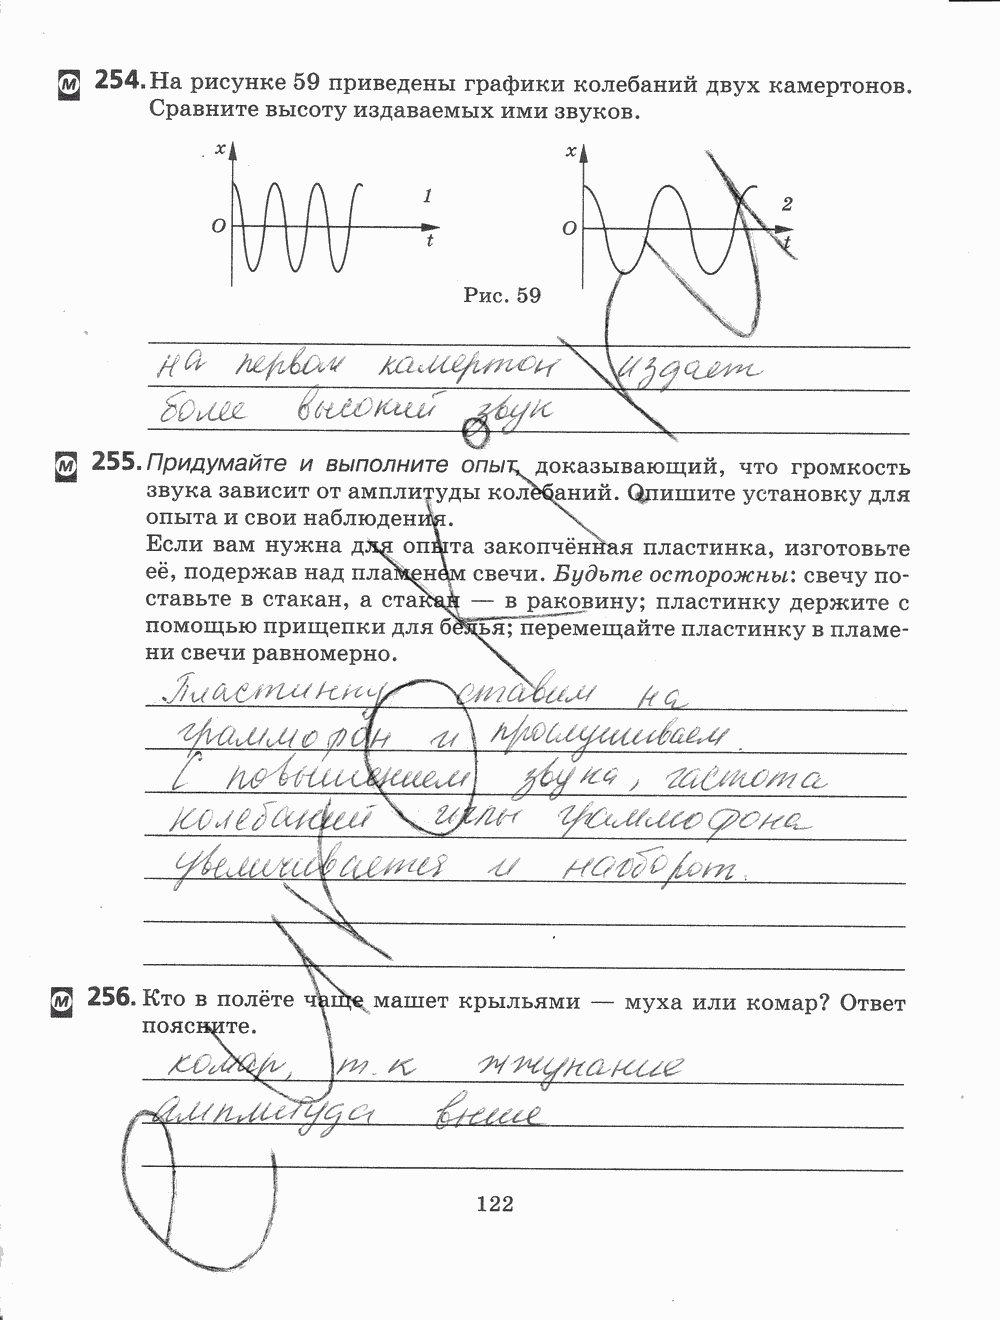 М 254. На рисунке 59 приведены графики колебаний двух камертонов.
Сравните высоту издаваемых ими звуков.
x x
1 2
O t O t
Рис. 59
на первом камертон издает
более высокий звук
М 255. Придумайте и выполните опыт, доказывающий, что громкость
звука зависит от амплитуды колебаний. Опишите установку для
опыта и свои наблюдения.
Если вам нужна для опыта закопчённая пластинка, изготовьте
её, подержав над пламенем свечи. Будьте осторожны: свечу по-
ставьте в стакан, а стакан — в раковину; пластинку держите с
помощью прищепки для белья; перемещайте пластинку в пламе-
ни свечи равномерно.
Пластинку ставим на
граммофон и прослушиваем.
С повышением звука, частота
колебаний иглы граммофона
увеличивается и наоборот.
М 256. Кто в полёте чаще машет крыльями — муха или комар? Ответ
поясните.
комар, т.к жжунание
амплитуда выше
122